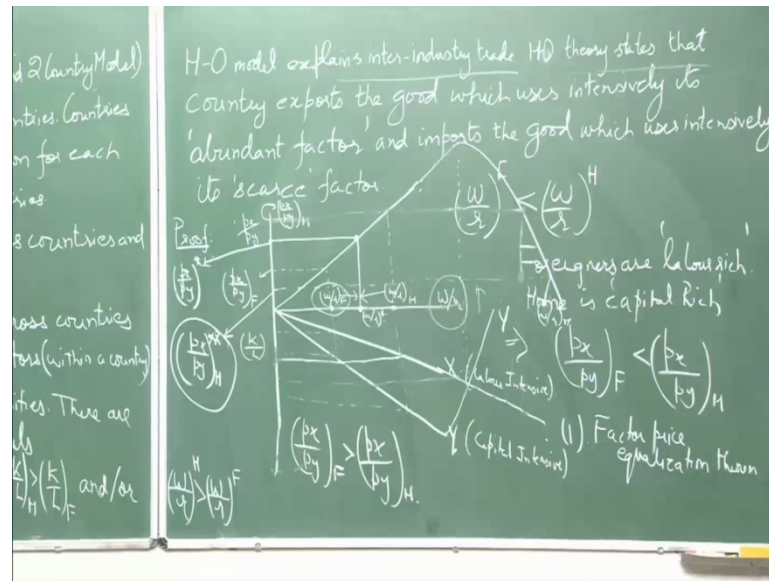 d 2 Country Model)
ntries. Countries
on for each
ries.
s countries and
ross countries
tors (within a country)
ities. There are
(K/L)H > (K/L)F and/or
H-O model explains inter-industry trade HO theory states that
Country exports the good which uses intensively its
'abundant factor' and imports the good which uses intensively
its 'scarce' factor.
Proof:
px/py
(px/py)H
(px/py)*
(px/py)F
(px/py)H
(K/L)
(w/r)F
(w/r)H
(w/r)*
w/r
(w/r)F < (w/r)H
Foreigners are 'labour rich'.
Home is 'capital Rich'
X (Labour Intensive)
Y (Capital Intensive)
Y
⇒ (px/py)F < (px/py)H
(1). Factor price
equalization theorem
(px/py)F > (px/py)H.
(w/r)H > (w/r)F